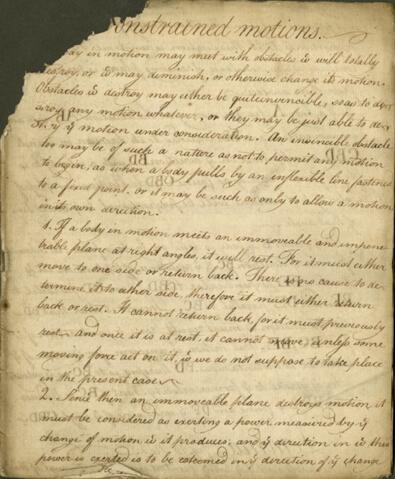 onstrained motions.
dy in motion may meet with obstacles wᶜʰ will totally
destroy, or wᶜʰ may diminish, or otherwise change its motion.
Obstacles wᶜʰ destroy may either be quite invincible, so as to dest
roy any motion whatever, or they may be just able to des
troy yᵉ motion under consideration. An invincible obstacle
too may be of such a nature as not to permit any motion
to begin; as when a body pulls by an inflexible line fastened
to a fixed point, or it may be such as only to allow a motion
in its own direction.
1. If a body in motion meets an immoveable and impene
trable plane at right angles, it will rest. For it must either
move to one side or return back. There is no cause to de
termine it to either side, therefore it must either return
back or rest. It cannot return back, for it must previously
rest, and once it is at rest, it cannot move, unless some
moving force act on it, wᶜʰ we do not suppose to take place
in the present case.
2. Since then an immoveable plane destroys motion it
must be considered as exerting a power measured by yᵉ
change of motion wᶜʰ it produces; and yᵉ direction in wᶜʰ this
power is exerted is to be esteemed in yᵉ direction of yᵉ change